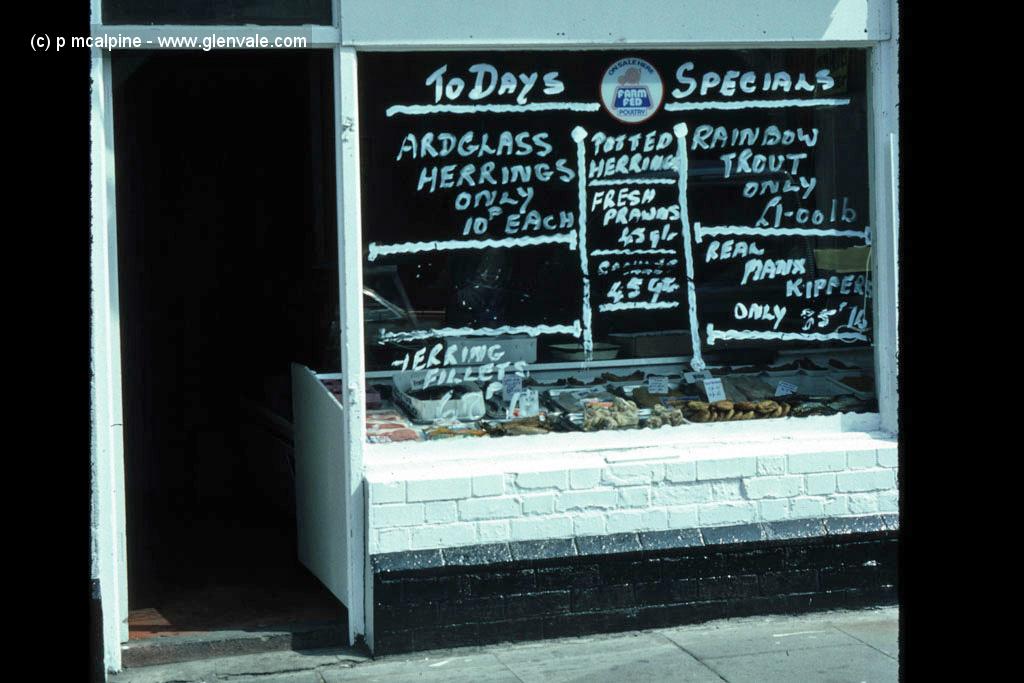 (c) p mcalpine - www.glenvale.com
TODAYS SPECIALS
ON SALE HERE
FARM
FED
POULTRY
ARDGLASS
HERRINGS
ONLY
10P EACH
POTTED
HERRING
FRESH
PRAWNS
45 qtr
45 qtr
RAINBOW
TROUT
ONLY
£1-00 lb
REAL
MANX
KIPPERS
ONLY
HERRING
FILLETS